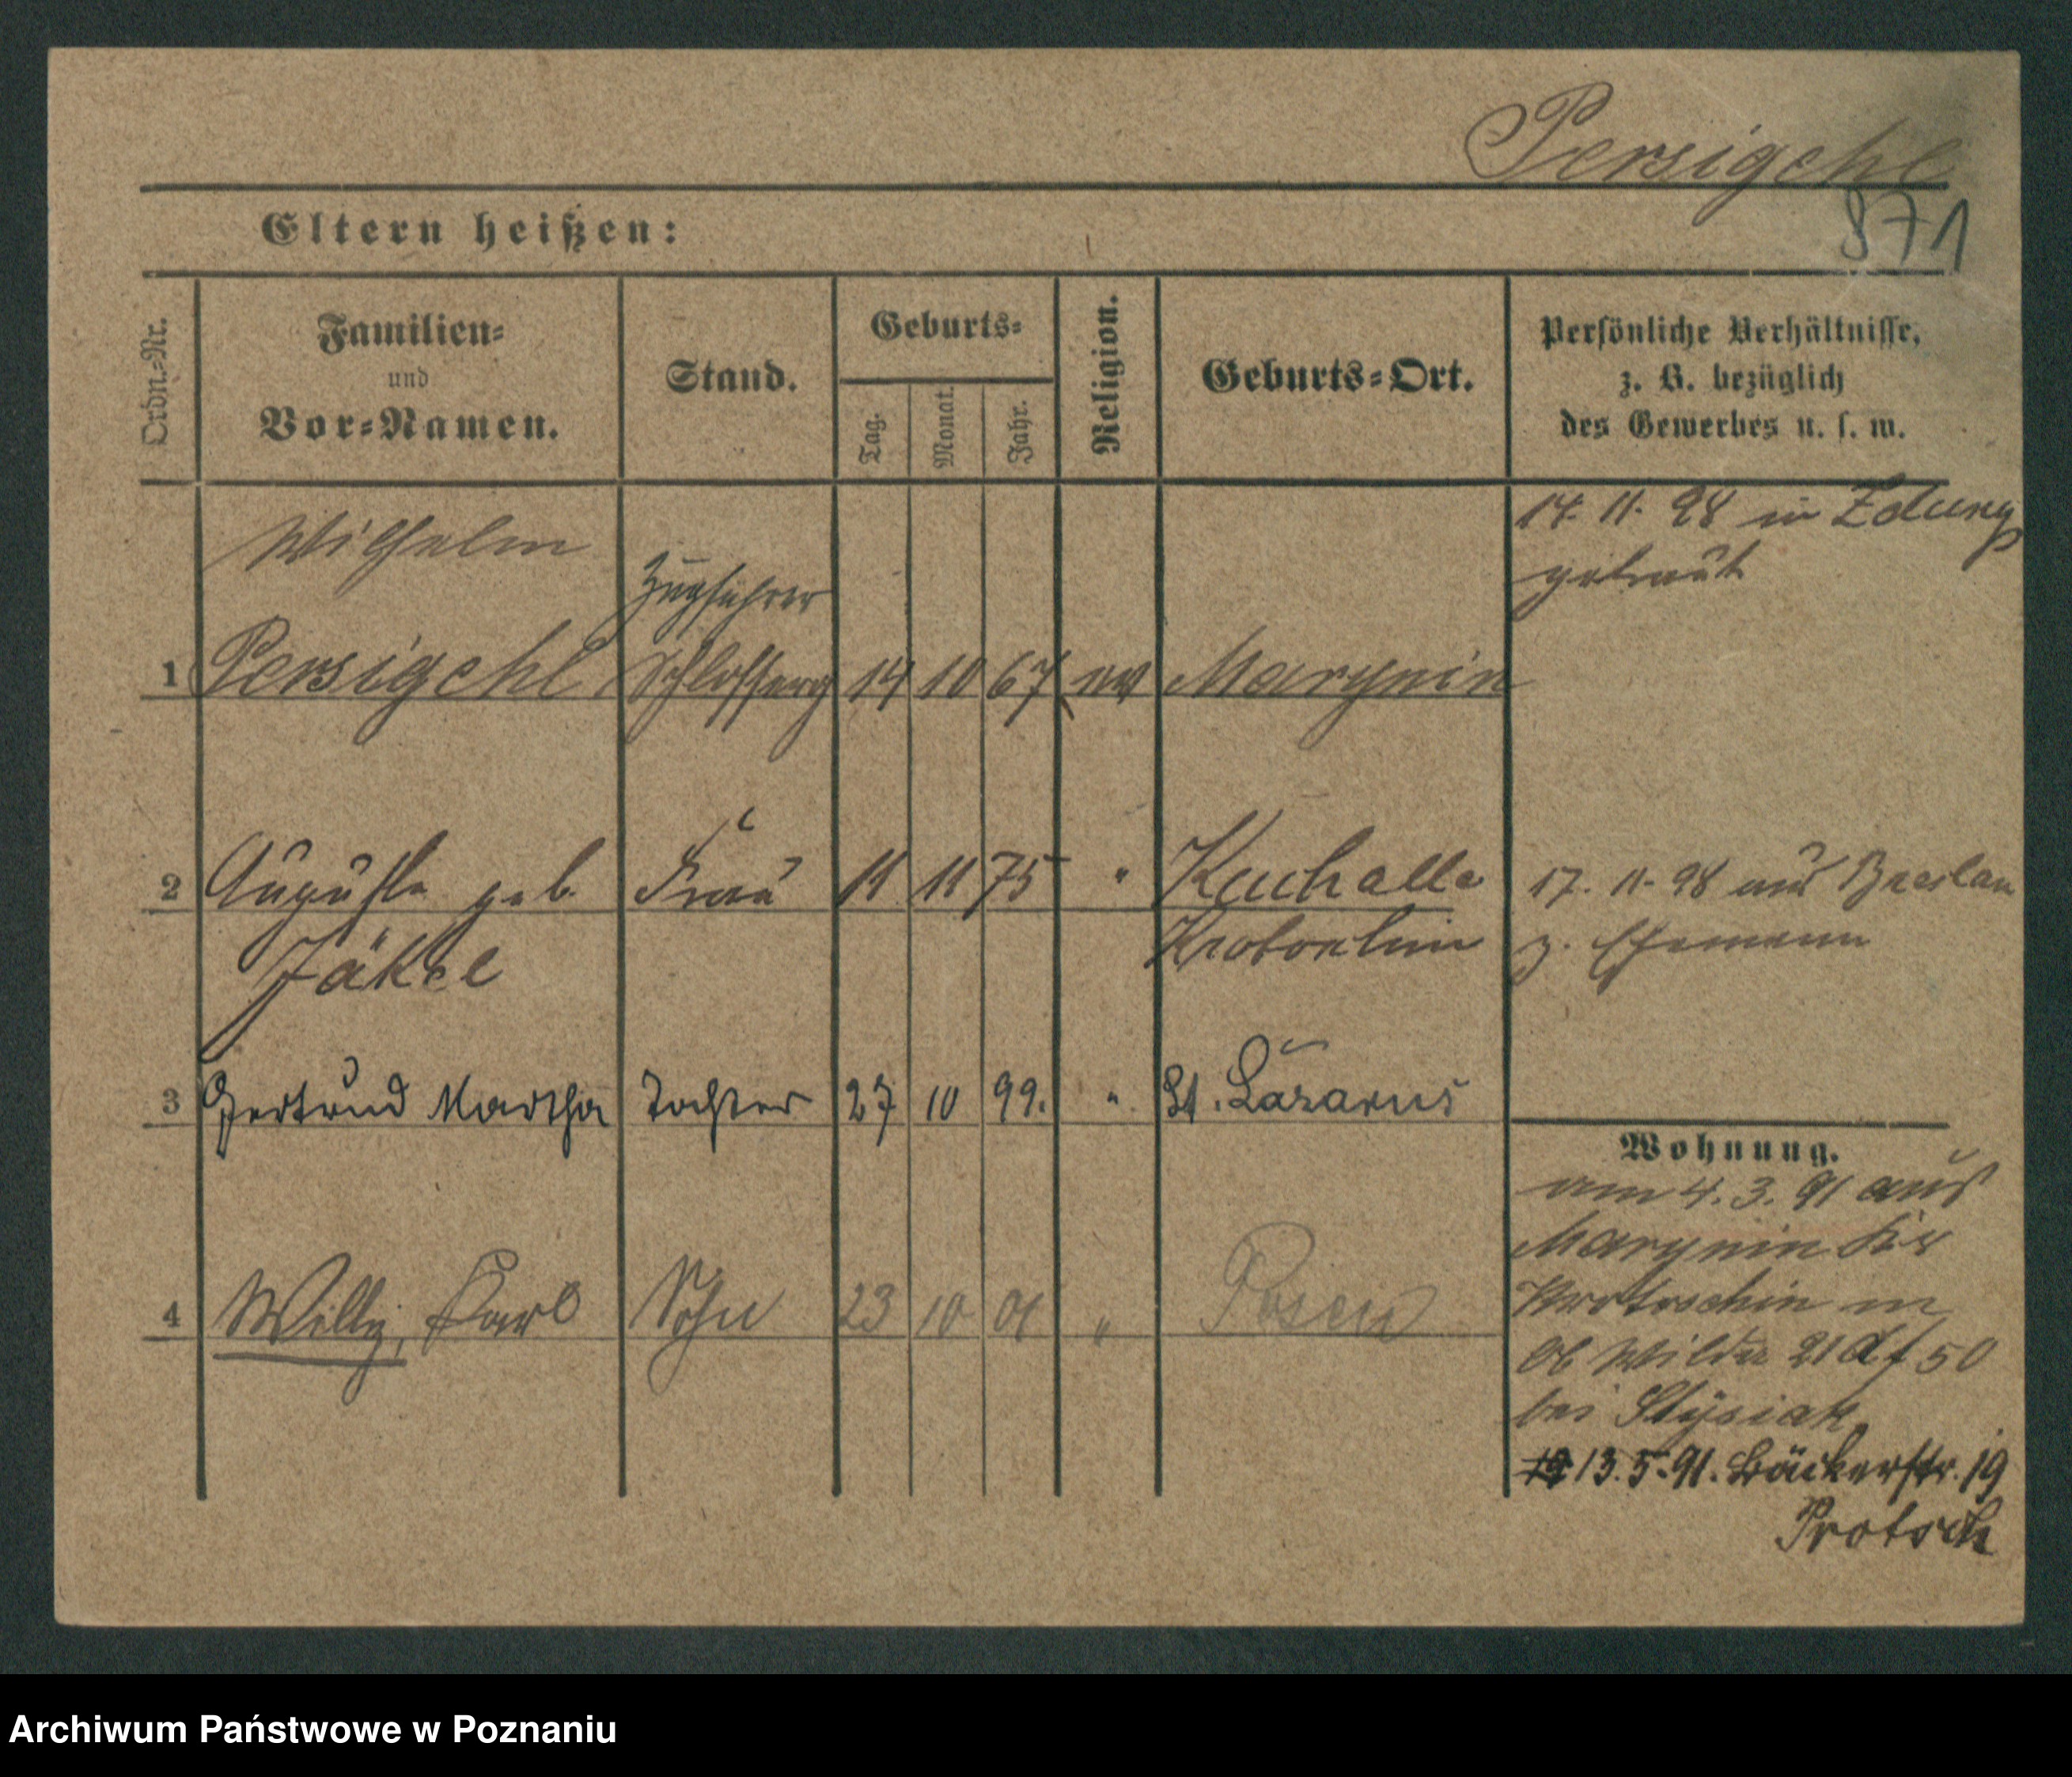 Persigehl
871
Eltern heißen:
Ordn.-Nr.
Familien-
und
Vor-Namen.
Stand.
Geburts-
Tag.
Monat.
Jahr.
Religion.
Geburts-Ort.
Persönliche Verhältnisse,
z. B. bezüglich
des Gewerbes u. s. w.
Wilhelm
Zugführer
1 Persigehl 14 10 67 ev Marynin
14. 11. 98 in Zduny
getraut
2 Auguste geb Frau 11 11 75 "
Jäkel
Krotoschin
17. 11. 98 aus Breslau
z. Ehemann
3 Gertrud Martha Tochter 27 10 99. " St. Lazarus
4 Willy, Karl Sohn 23 10 01 " Posen
Wohnung.
am 4. 3. 91 aus
Marynin Krs
Krotoschin in
Ob Wilda 21 50
bei Stysiak
13. 5. 91. Bäckerstr. 19
Protsch
Archiwum Państwowe w Poznaniu